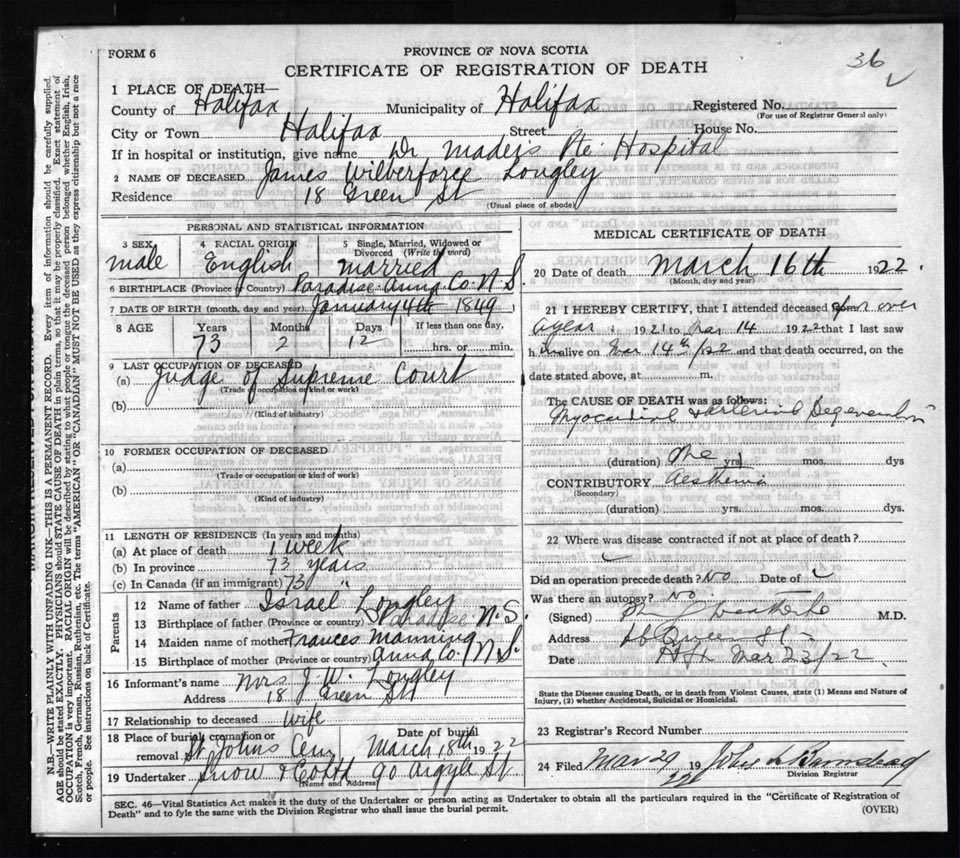 FORM 6
PROVINCE OF NOVA SCOTIA
36
CERTIFICATE OF REGISTRATION OF DEATH
1 PLACE OF DEATH—
County of Halifax Municipality of Halifax Registered No.
(For use of Registrar General only)
City or Town Halifax Street House No.
If in hospital or institution, give name Dr Mader's Pte. Hospital
2 NAME OF DECEASED James Wilberforce Longley
Residence 18 Green St
(Usual place of abode)
PERSONAL AND STATISTICAL INFORMATION
3 SEX 4 RACIAL ORIGIN 5 Single, Married, Widowed or Divorced (Write the word)
male English married
6 BIRTHPLACE (Province or Country) Paradise Anna Co. N.S.
7 DATE OF BIRTH (month, day and year) January 4th 1849
8 AGE Years Months Days If less than one day,
73 2 12 hrs. or min.
9 LAST OCCUPATION OF DECEASED
(a) Judge of Supreme Court
(Trade or occupation or kind of work)
(b)
(Kind of industry)
10 FORMER OCCUPATION OF DECEASED
(a)
(Trade or occupation or kind of work)
(b)
(Kind of industry)
11 LENGTH OF RESIDENCE (In years and months)
(a) At place of death 1 week
(b) In province 73 years
(c) In Canada (if an immigrant) 73 "
Parents
12 Name of father Israel Longley
13 Birthplace of father (Province or country) Paradise N.S.
14 Maiden name of mother Frances Manning
15 Birthplace of mother (Province or country) Anna Co. N.S.
16 Informant's name Mrs J. W. Longley
Address 18 Green St
17 Relationship to deceased wife
18 Place of burial, cremation or removal St. Johns Cem Date of burial March 18th 1922
19 Undertaker Snow & Co Ltd 90 Argyle St
(Name and Address)
MEDICAL CERTIFICATE OF DEATH
20 Date of death March 16th 1922.
(Month, day and year)
21 I HEREBY CERTIFY, that I attended deceased for over
a year 1921 to Mar 14 1922 that I last saw
him alive on Mar 14th/22 and that death occurred, on the
date stated above, at m.
The CAUSE OF DEATH was as follows:
Myocardial & Arterial Degeneration
(duration) One yrs. mos. dys
CONTRIBUTORY
(Secondary)
(duration) yrs. mos. dys.
22 Where was disease contracted if not at place of death?
Did an operation precede death? No Date of
Was there an autopsy? No.
(Signed) M.D.
Address
Date Hfx Mar 23/22
State the Disease causing Death, or in death from Violent Causes, state (1) Means and Nature of
Injury, (2) whether Accidental, Suicidal or Homicidal.
23 Registrar's Record Number
24 Filed Mar 29 19 22 John
Division Registrar
SEC. 46—Vital Statistics Act makes it the duty of the Undertaker or person acting as Undertaker to obtain all the particulars required in the "Certificate of Registration of
Death" and to fyle the same with the Division Registrar who shall issue the burial permit.
(OVER)
N.B.—WRITE PLAINLY WITH UNFADING INK—THIS IS A PERMANENT RECORD. Every item of information should be carefully supplied.
AGE should be stated EXACTLY. PHYSICIANS should STATE CAUSE OF DEATH in plain terms, so that it may be properly classified. Exact statement of
OCCUPATION is very important. RACIAL ORIGIN will be described by stating to what people or tongue the deceased person belonged whether English, Irish,
Scotch, French, German, Russian, Ruthenian, etc. The terms "AMERICAN" OR "CANADIAN" MUST NOT BE USED as they express citizenship but not a race
or people. See instructions on back of Certificate.